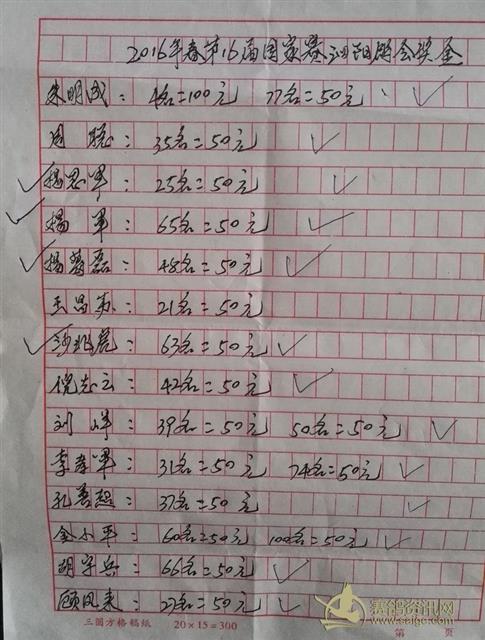 2016年春第16届国家赛泗阳鸽会奖金
朱明成：4名=100元 77名=50元
周聪：35名=50元
杨思军：25名=50元
杨军：65名=50元
杨磊：48名=50元
王昌苏：21名=50元
63名=50元
倪志云：42名=50元
刘峰：39名=50元 50名=50元
李孝军：31名=50元 74名=50元
孔善超：37名=50元
金小平：60名=50元 100名=50元
胡字兵：66名=50元
顾凤来：27名=50元
三圆方格稿纸 20×15=300 第 页
赛鸽资讯网
www.saige.com